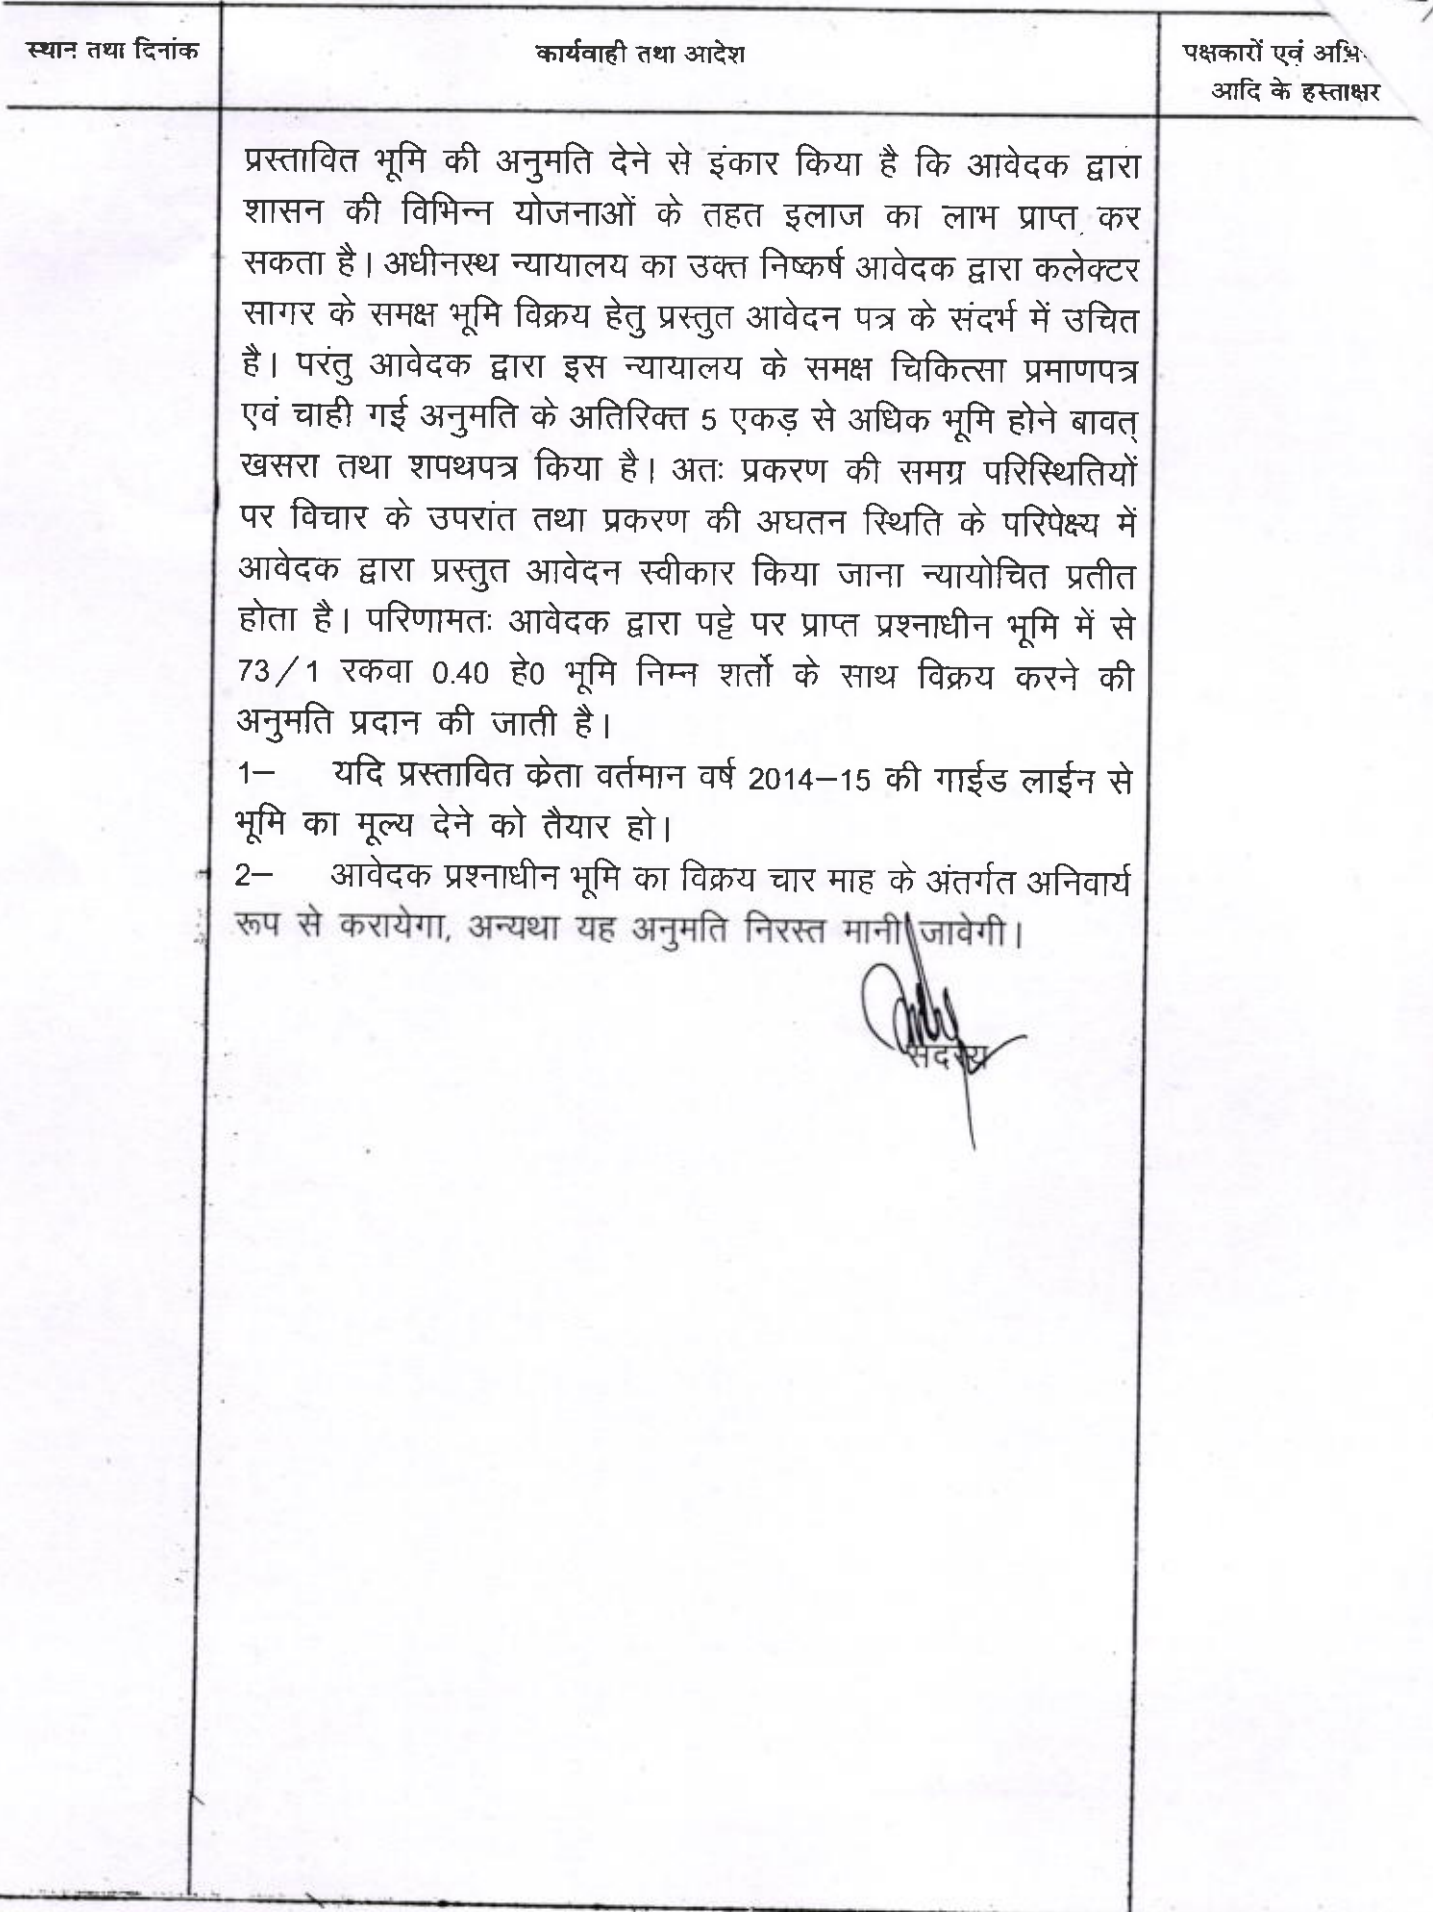 स्थान तथा दिनांक
कार्यवाही तथा आदेश
पक्षकारों एवं अभि
आदि के हस्ताक्षर
प्रस्तावित भूमि की अनुमति देने से इंकार किया है कि आवेदक द्वारा
शासन की विभिन्न योजनाओं के तहत इलाज का लाभ प्राप्त कर
सकता है। अधीनस्थ न्यायालय का उक्त निष्कर्ष आवेदक द्वारा कलेक्टर
सागर के समक्ष भूमि विक्रय हेतु प्रस्तुत आवेदन पत्र के संदर्भ में उचित
है। परंतु आवेदक द्वारा इस न्यायालय के समक्ष चिकित्सा प्रमाणपत्र
एवं चाही गई अनुमति के अतिरिक्त 5 एकड़ से अधिक भूमि होने बावत्
खसरा तथा शपथपत्र किया है। अतः प्रकरण की समग्र परिस्थितियों
पर विचार के उपरांत तथा प्रकरण की अघतन स्थिति के परिपेक्ष्य में
आवेदक द्वारा प्रस्तुत आवेदन स्वीकार किया जाना न्यायोचित प्रतीत
होता है। परिणामतः आवेदक द्वारा पट्टे पर प्राप्त प्रश्नाधीन भूमि में से
73/1 रकवा 0.40 हे0 भूमि निम्न शर्तो के साथ विक्रय करने की
अनुमति प्रदान की जाती है।
1– यदि प्रस्तावित क्रेता वर्तमान वर्ष 2014–15 की गाईड लाईन से
भूमि का मूल्य देने को तैयार हो।
2– आवेदक प्रश्नाधीन भूमि का विक्रय चार माह के अंतर्गत अनिवार्य
रूप से करायेगा, अन्यथा यह अनुमति निरस्त मानी जावेगी।
सदस्य